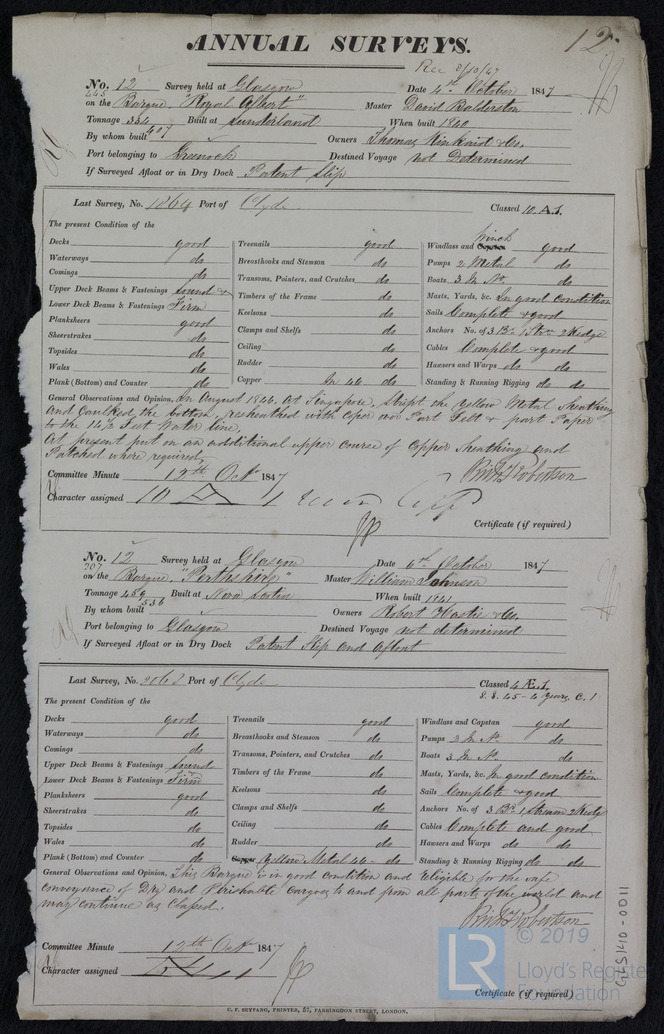 12
ANNUAL SURVEYS.
Rec 8/10/47
No. 12 Survey held at Glasgow Date 4th October 1847
445
on the Barque "Royal Albert" Master David Balderston
Tonnage 334 Built at Sunderland When built 1840
407
By whom built Owners Thomas Kinkaid & Co.
Port belonging to Greenock Destined Voyage not Determined
If Surveyed Afloat or in Dry Dock Patent Slip
Last Survey, No. 1864 Port of Clyde Classed 10. A.1.
The present Condition of the
Decks good Treenails good Windlass and Capstan Winch good
Waterways do Breasthooks and Stemson do Pumps 2 Metal do
Comings do Transoms, Pointers, and Crutches do Boats 3 In No. do
Upper Deck Beams & Fastenings Sound & Timbers of the Frame do Masts, Yards, &c. In good condition
Lower Deck Beams & Fastenings Firm Keelsons do Sails Complete & good
Planksheers good Clamps and Shelfs do Anchors No. of 3 Br. 1 Str. 2 Kedge
Sheerstrakes do Ceiling do Cables Complete & good
Topsides do Rudder do Hawsers and Warps do do
Wales do Copper In 44 do Standing & Running Rigging do do
Plank (Bottom) and Counter do
General Observations and Opinion, In August 1844. At Singapore, Stript the Yellow Metal Sheathing
and Caulked the bottom, resheathed with Coper over Part Felt & part Paper
to the 14½ Feet Water line,
At present put on an additional upper course of Copper Sheathing and
Patched where required,
Robertson
Committee Minute 12th Oct 1847
Character assigned 10 A 1
Certificate (if required)
No. 12 Survey held at Glasgow Date 6th October 1847
207
on the Barque, "Perthshire" Master William Johnson
Tonnage 459 Built at Nova Scotia When built 1841
536
By whom built Owners Robert Hastie & Co.
Port belonging to Glasgow Destined Voyage not determined
If Surveyed Afloat or in Dry Dock Patent Slip and Afloat
Last Survey, No. 2068 Port of Clyde Classed 4 Æ.1.
S.S. 45 - 4 Years. C. 1
The present Condition of the
Decks good Treenails good Windlass and Capstan good
Waterways do Breasthooks and Stemson do Pumps 2 In No. do
Comings do Transoms, Pointers, and Crutches do Boats 3 In No. do
Upper Deck Beams & Fastenings Sound Timbers of the Frame do Masts, Yards, &c. In good condition
Lower Deck Beams & Fastenings Firm Keelsons do Sails Complete & good
Planksheers good Clamps and Shelfs do Anchors No. of 3 Br. 1 Stream 2 Kedge
Sheerstrakes do Ceiling do Cables Complete and good
Topsides do Rudder do Hawsers and Warps do do
Wales do Copper Yellow Metal 44 do Standing & Running Rigging do do
Plank (Bottom) and Counter do
General Observations and Opinion, This Barque is in good condition and Eligible for the safe
conveyance of Dry and Perishable Cargoes to and from all parts of the world and
may continue as Classed.
Robertson
Committee Minute 12th Oct 1847
Character assigned
Certificate (if required)
C. F. SEYFANG, PRINTER, 57, FARRINGDON STREET, LONDON.
GLS140-0011
LR
© 2019
Lloyd's Register
Foundation